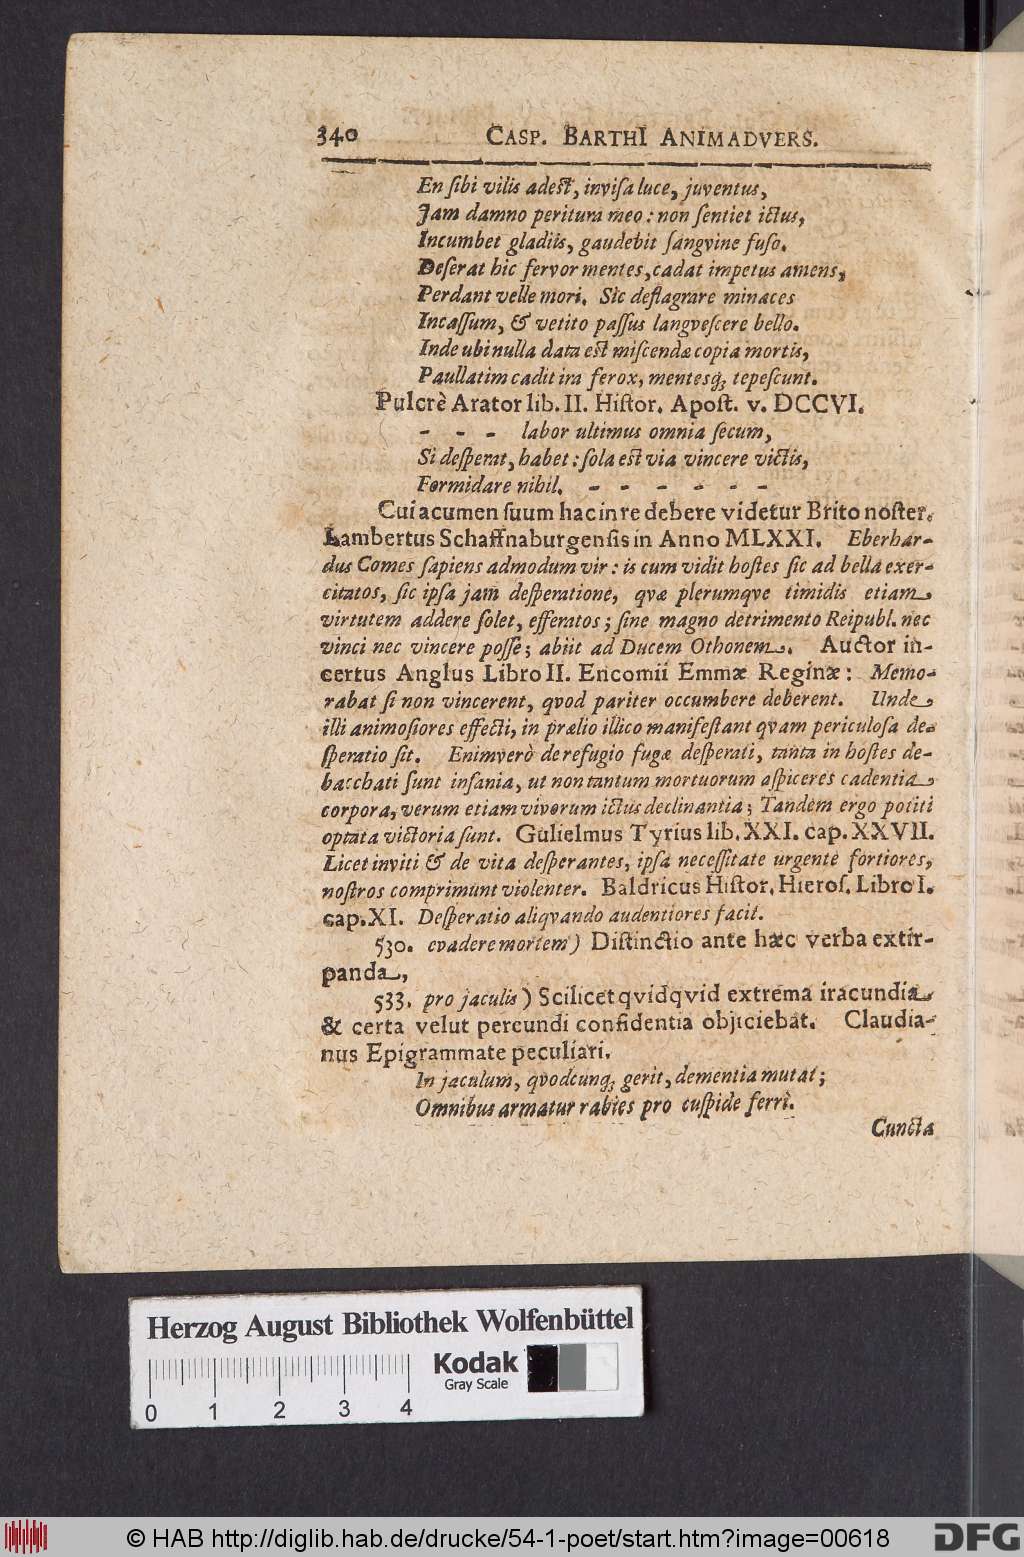 340 CASP. BARTHI ANIMADVERS.
En ſibi vilis adeſt, inviſa luce, juventus,
Jam damno peritura meo: non ſentiet ictus,
Incumbet gladiis, gaudebit ſangvine fuſo.
Deſerat hic fervor mentes, cadat impetus amens,
Perdant velle mori. Sic deflagrare minaces
Incaſſum, & vetito paſſus langveſcere bello.
Inde ubi nulla data eſt miſcendæ copia mortis,
Paullatim cadit ira ferox, mentesq; tepeſcunt.
Pulcrè Arator lib. II. Hiſtor. Apoſt. v. DCCVI.
- - - labor ultimus omnia ſecum,
Si deſperat, habet: ſola eſt via vincere victis,
Formidare nihil. - - - - - -
Cui acumen ſuum hac in re debere videtur Brito noſter.
Lambertus Schaffnaburgenſis in Anno MLXXI. Eberhar-
dus Comes ſapiens admodum vir: is cum vidit hoſtes ſic ad bella exer-
citatos, ſic ipſa jam deſperatione, qvæ plerumqve timidis etiam
virtutem addere ſolet, efferatos; ſine magno detrimento Reipubl. nec
vinci nec vincere poſſe; abiit ad Ducem Othonem. Auctor in-
certus Anglus Libro II. Encomii Emmæ Reginæ: Memo-
rabat ſi non vincerent, qvod pariter occumbere deberent. Unde
illi animoſiores effecti, in prælio illico manifeſtant qvam periculoſa de-
ſperatio ſit. Enimverò de refugio fugæ deſperati, tanta in hoſtes de-
bacchati ſunt inſania, ut non tantum mortuorum aſpiceres cadentia
corpora, verum etiam vivorum ictus declinantia; Tandem ergo potiti
optata victoria ſunt. Gulielmus Tyrius lib. XXI. cap. XXVII.
Licet inviti & de vita deſperantes, ipſa neceſſitate urgente fortiores,
noſtros comprimunt violenter. Baldricus Hiſtor. Hieroſ. Libro I.
cap. XI. Deſperatio aliqvando audentiores facit.
530. evadere mortem) Diſtinctio ante hæc verba extir-
panda,
533. pro jaculis) Scilicet qvidqvid extrema iracundia
& certa velut pereundi confidentia objiciebat. Claudia-
nus Epigrammate peculiari.
In jaculum, qvodcunq; gerit, dementia mutat;
Omnibus armatur rabies pro cuſpide ferri.
Cuncta
Herzog August Bibliothek Wolfenbüttel
Kodak
Gray Scale
0 1 2 3 4
© HAB http://diglib.hab.de/drucke/54-1-poet/start.htm?image=00618
DFG